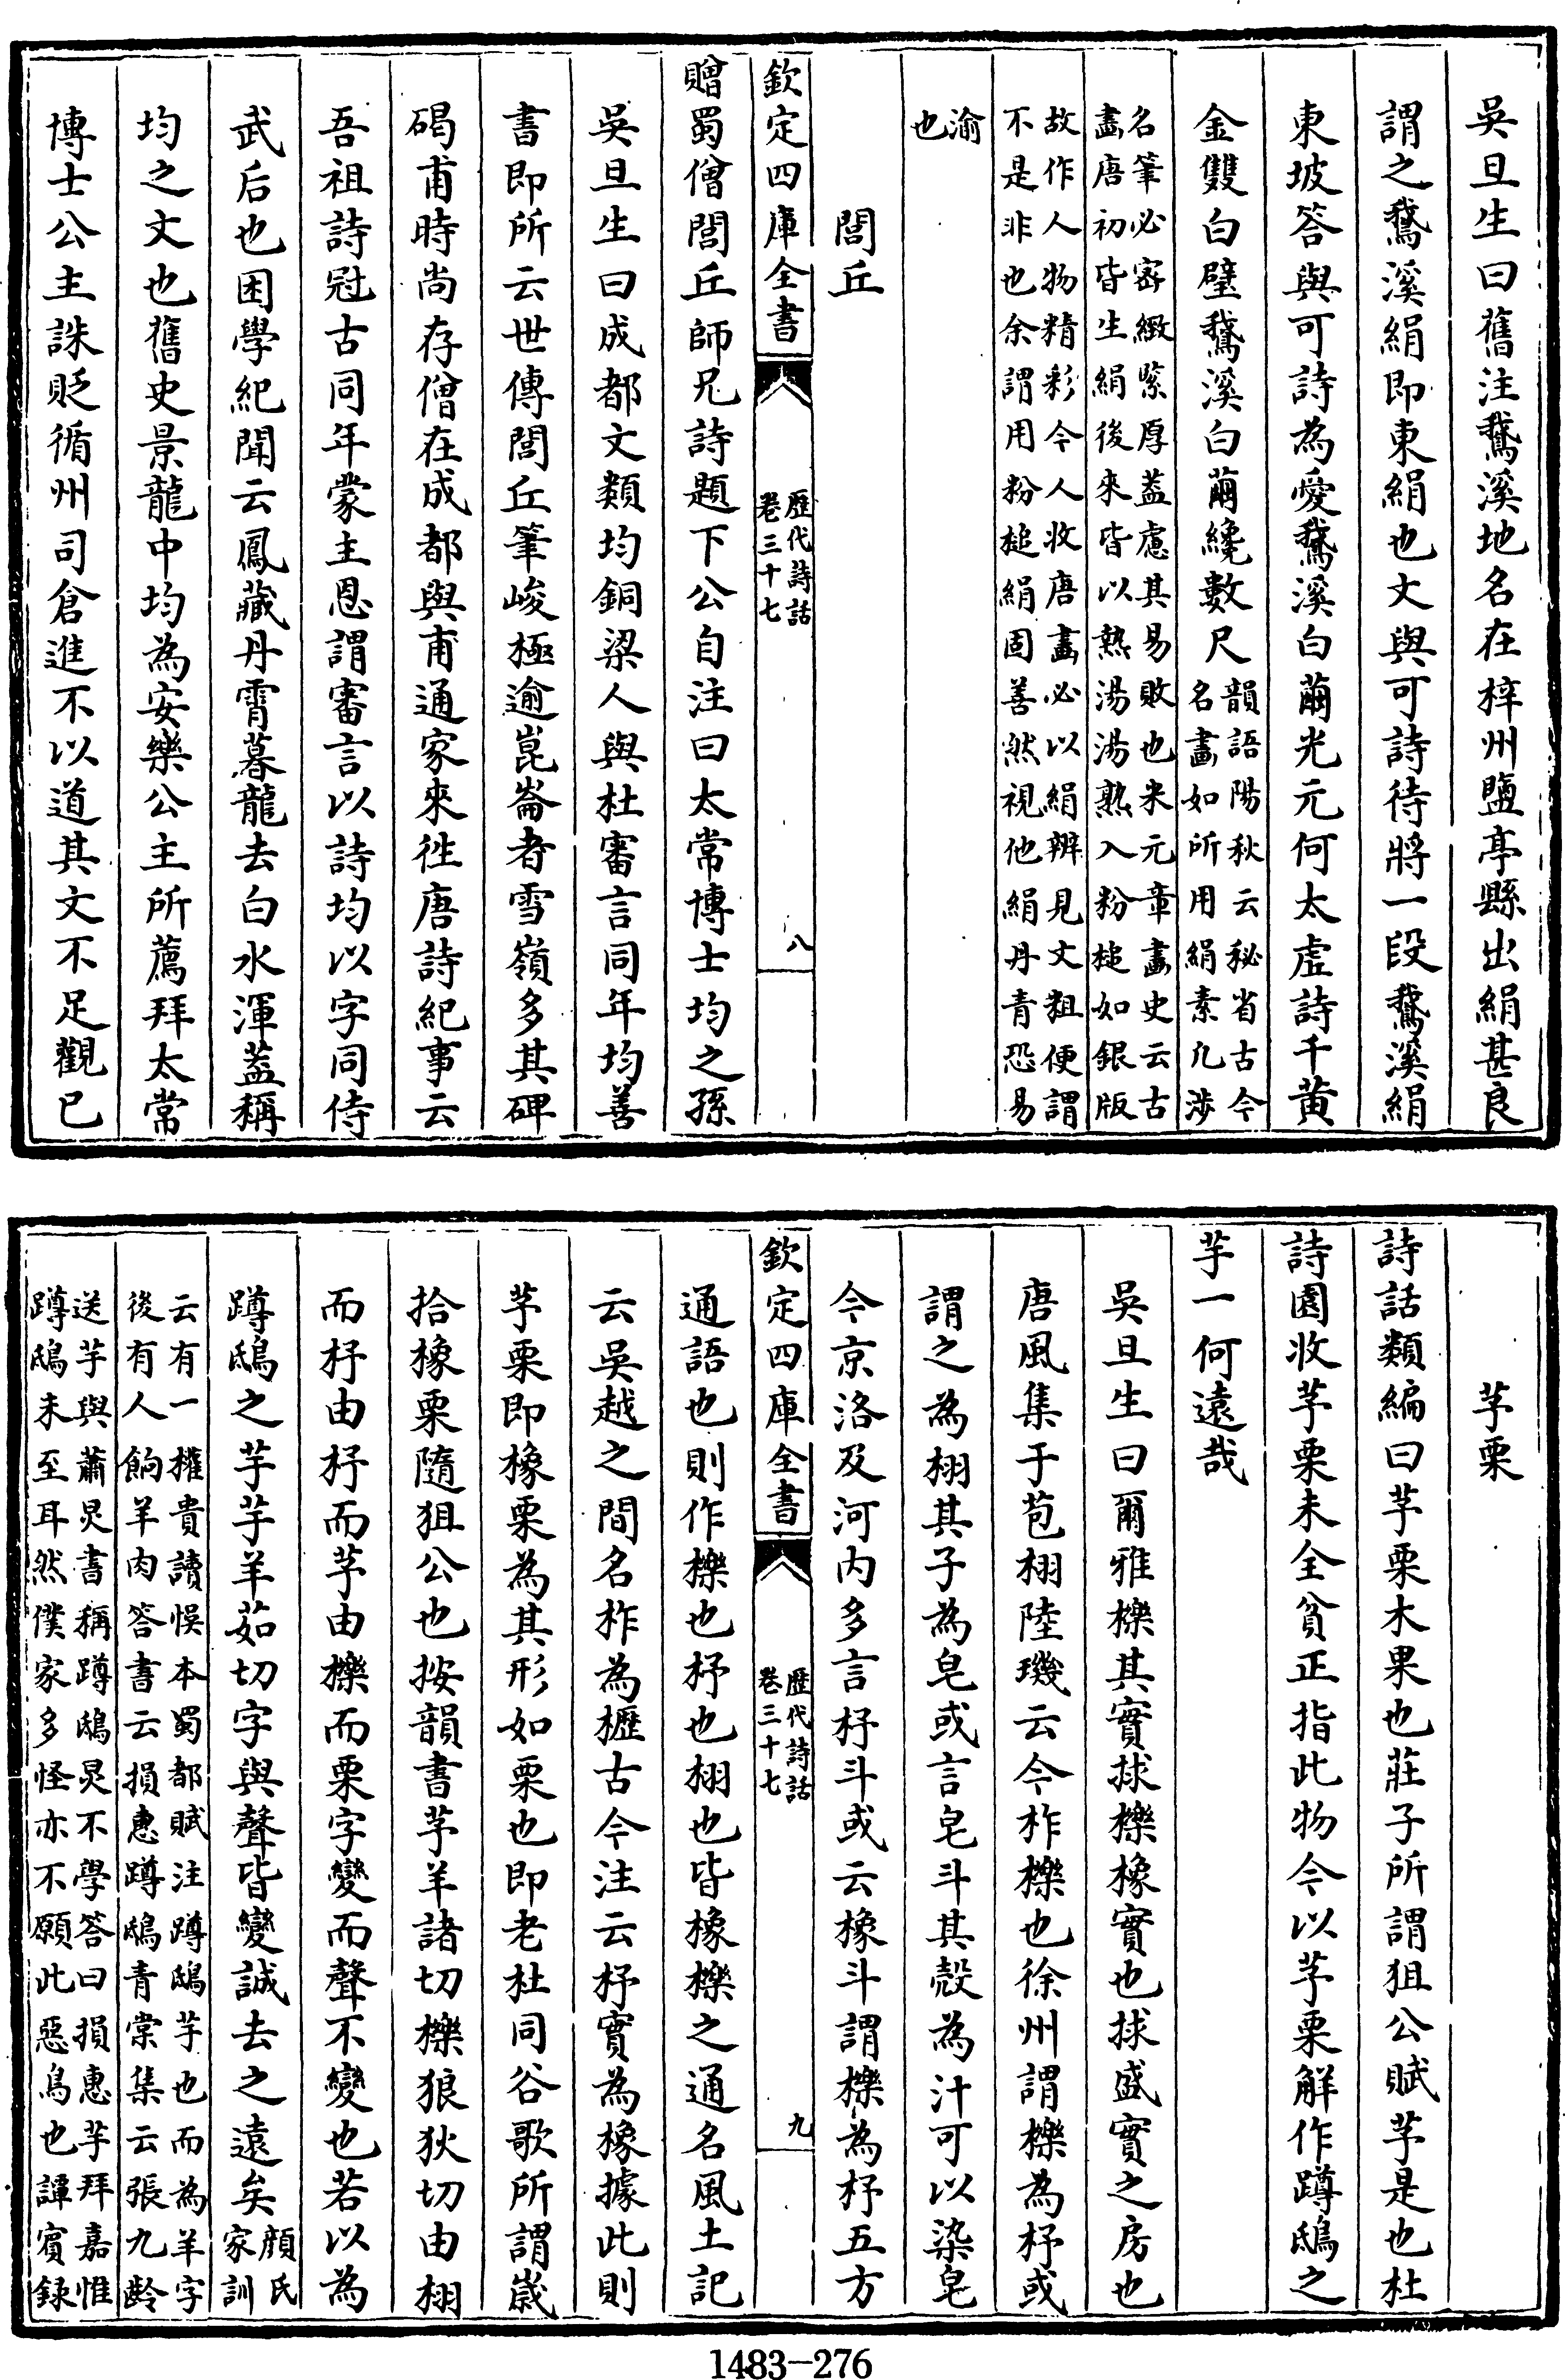 吳旦生曰舊注鵞溪地名在梓州鹽亭縣出絹甚良
謂之鵞溪絹即東絹也文與可詩待將一段鵞溪絹
東坡答與可詩為愛鵞溪白繭光元何太虛詩千黄
金雙白璧鵞溪白繭纔數尺韻語陽秋云秘省古今
名畫如所用絹素凡涉
名筆必宻緻緊厚葢慮其易敗也米元章畫史云古
畫唐初皆生絹後來皆以熱湯湯熟入粉槌如銀版
故作人物精彩今人收唐畫必以絹辨見文粗便謂
不是非也余謂用粉槌絹固善然視他絹丹青恐易
渝
也
閭丘
欽定四庫全書
歷代詩話
卷三十七
八
贈蜀僧閭丘師兄詩題下公自注曰太常博士均之孫
吳旦生曰成都文類均銅梁人與杜審言同年均善
書即所云世傳閭丘筆峻極逾崑崙者雪嶺多其碑
碣甫時尚存僧在成都與甫通家來往唐詩紀事云
吾祖詩冠古同年蒙主恩謂審言以詩均以字同侍
武后也困學紀聞云鳳藏丹霄暮龍去白水渾葢稱
均之文也舊史景龍中均為安樂公主所薦拜太常
博士公主誅貶循州司倉進不以道其文不足觀已
芧栗
詩話類編曰芧栗木果也莊子所謂狙公賦芧是也杜
詩園收芧栗未全貧正指此物今以芧栗解作蹲鴟之
芋一何遠哉
吳旦生曰爾雅櫟其實捄櫟橡實也捄盛實之房也
唐風集于苞栩陸璣云今柞櫟也徐州謂櫟為杼或
謂之為栩其子為皂或言皂斗其殼為汁可以染皂
今京洛及河内多言杼斗或云橡斗謂櫟為杼五方
欽定四庫全書
歷代詩話
卷三十七
九
通語也則作櫟也杼也栩也皆橡櫟之通名風土記
云吳越之間名柞為櫪古今注云杼實為橡據此則
芧栗即橡栗為其形如栗也即老杜同谷歌所謂歲
拾橡栗隨狙公也按韻書芧羊諸切櫟狼狄切由栩
而杼由杼而芧由櫟而栗字變而聲不變也若以為
蹲鴟之芋芋羊茹切字與聲皆變誠去之遠矣顔氏
家訓
云有一權貴讀悮本蜀都賦注蹲鴟芋也而為羊字
後有人餉羊肉答書云損惠蹲鴟青棠集云張九齡
送芋與蕭炅書稱蹲鴟炅不學答曰損惠芋拜嘉惟
蹲鴟未至耳然僕家多怪亦不願此惡鳥也譚賓録
1483-276